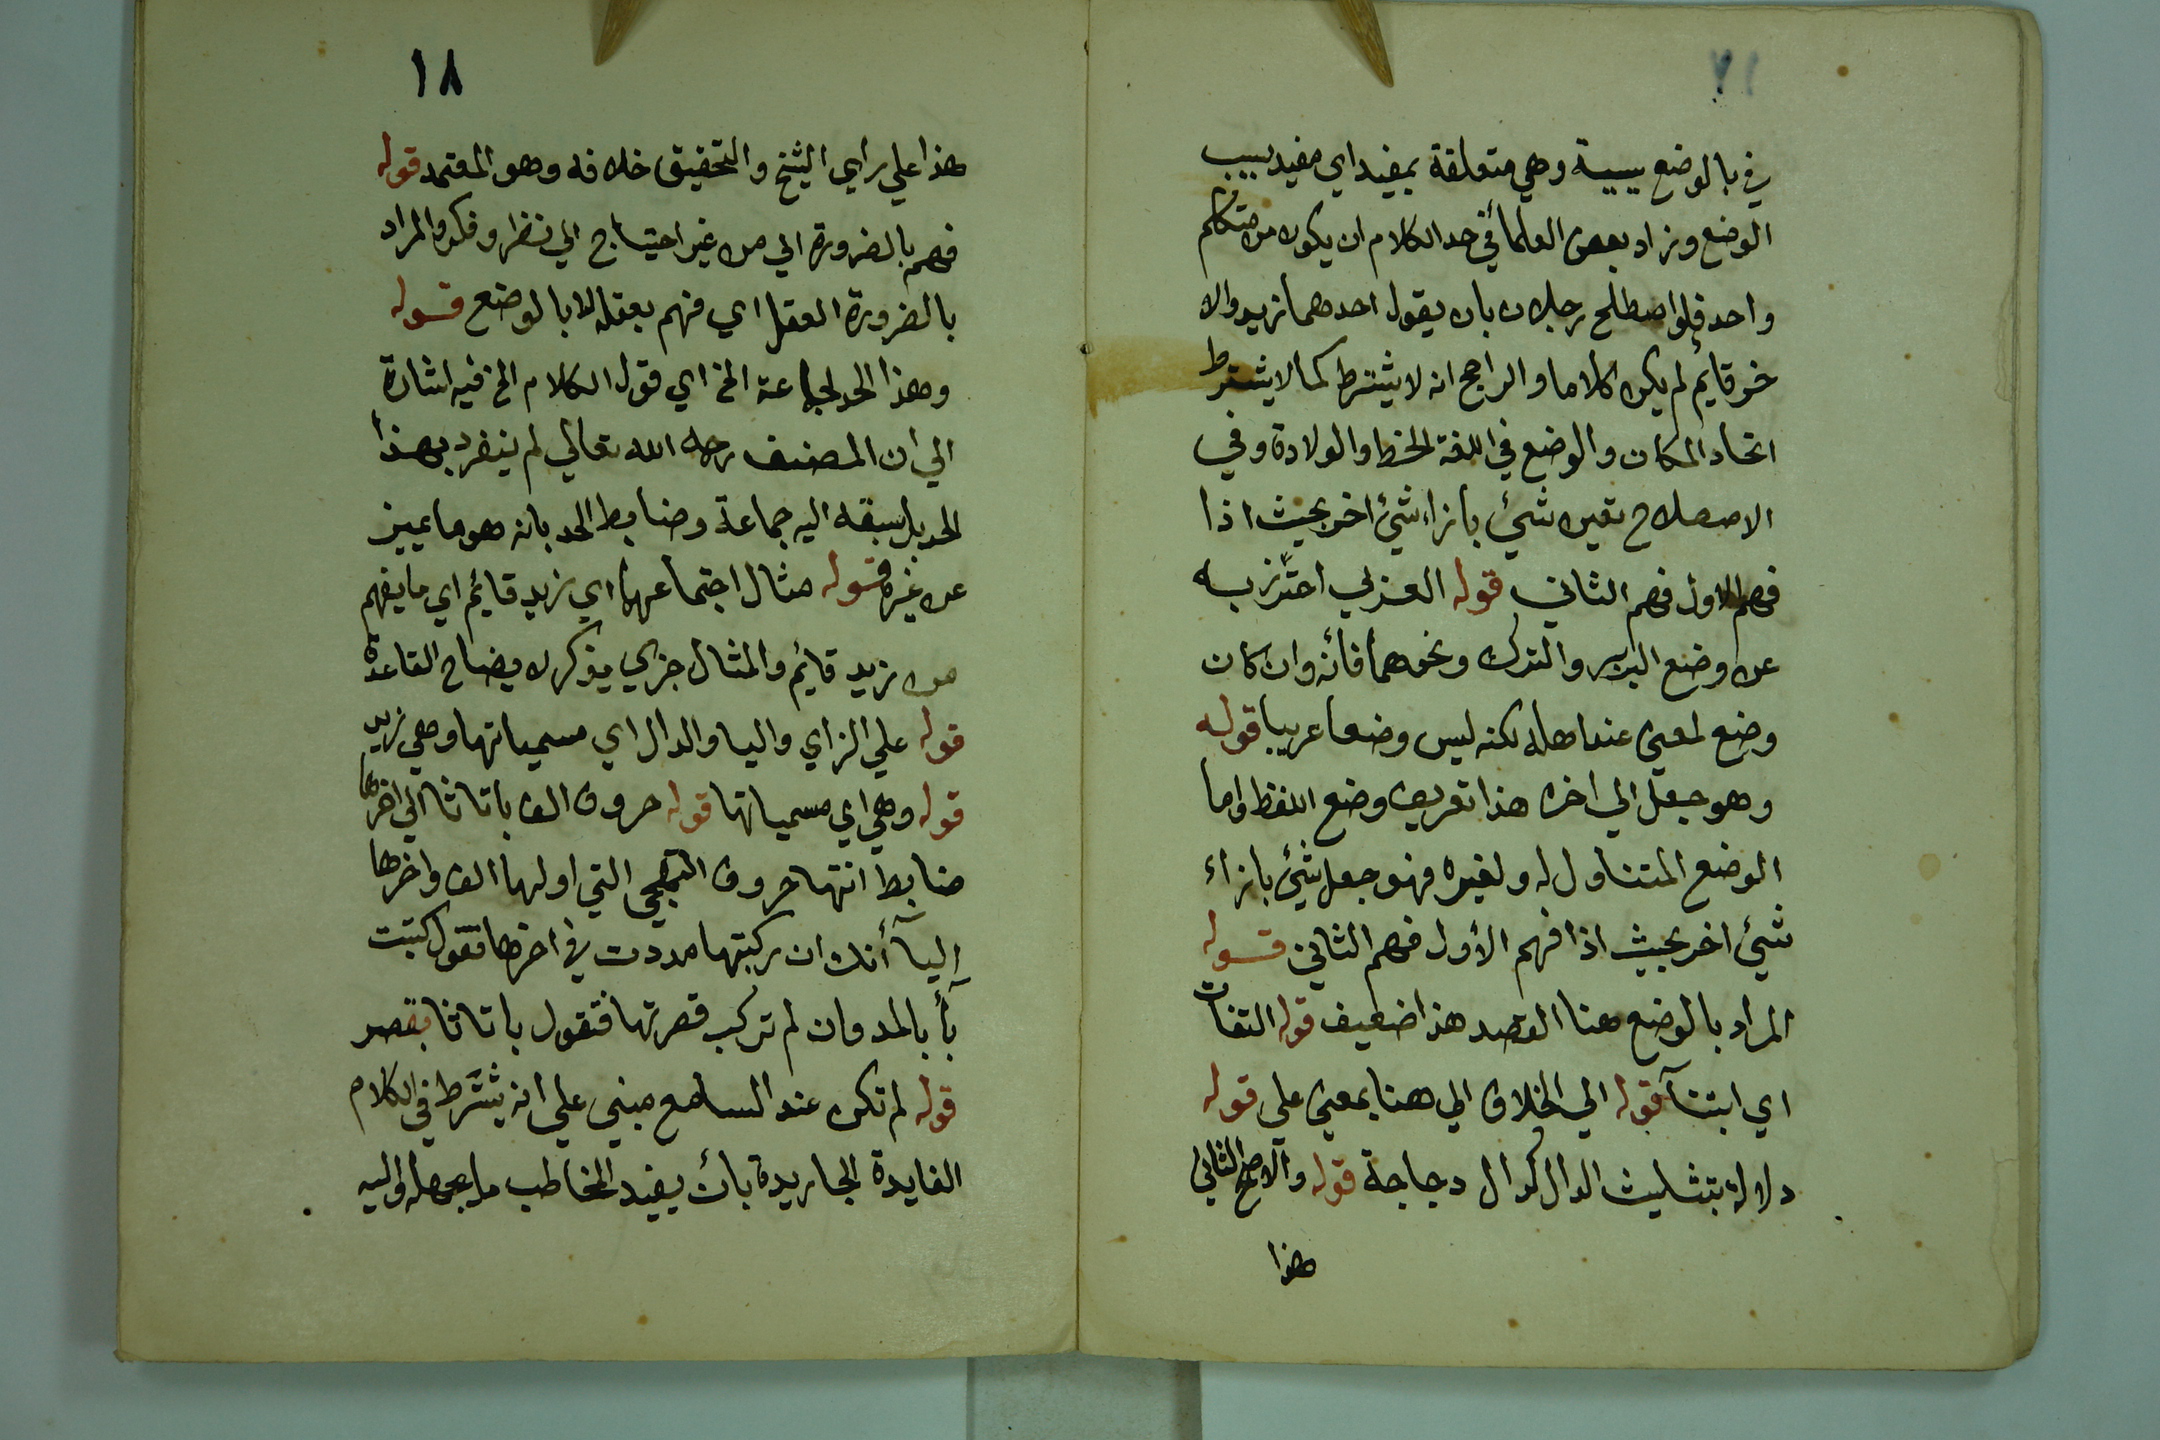 ١٧
في بالوضع سببية وهي متعلقة بمفيد اي مفيد بسبب
الوضع وزاد بعض العلمأ في حد الكلام ان يكون من متكلم
واحد فلو اصطلح رجلان بان يقول احدهما زيد والا
خر قائم لم يكن كلاما والراجح انه لا يشترط كما لا يشترط
اتحاد المكان والوضع في اللغة الحط والولادة وفي
الاصطلاح تعين شئ بازاء شئ اخر بحيث اذا
فهم الاول فهم الثاني قوله العربي احترز به
عن وضع البربر والترك ونحوهما فأنه وان كان
وضع لمعنى عند اهله لكنه ليس وضعا عربيا قوله
وهو جعل الي اخره هذا تعريف وضع اللفظ واما
الوضع المتناول له ولغيره فهو جعل شئ بازاء
شئ اخر بحيث اذا فهم الأول فهم الثاني قوله
المراد بالوضع هنا القصد هذا ضعيف قوله التفات
اي ابتنآ قوله الي الخلاف الي هنا بمعنى على قوله
دلالة بتثليث الدال كدال دجاجة قوله والاصح الثاني
هذا
١٨
هذا علي راي الشيخ والتحقيق خلافه وهو المعتمد قوله
فهم بالضرورة اي من غير احتياج الي نظر وفكر والمراد
بالضرورة العقل اي فهم بعقله لا بالوضع قوله
وهذا الحد لجماعة الخ اي قول الكلام الخ فيه اشارة
الي ان المصنف رحمه الله تعالي لم ينفرد بهذا
الحد بل سبقه اليه جماعة وضابط الحد بانه هو ما يميز
عن غيره قوله مثال اجتماعها اي زيد قائم اي ما يفهم
من زيد قائم والمثال جزي يذكر لايضاح القاعدة
قوله علي الزاي واليا والدال اي مسمياتها وهي زيد
قوله وهي اي مسمياتها قوله حروف الف با تا ثا الي اخرها
ضابط انتها حروف التهجي التي اولها الف واخرها
اليآ أنك ان ركبتها مددت في اخرها تقول كتبت
بآ بالمد وان لم تركب قصرتها فتقول با تا ثا بقصر
قوله لم تكن عند السامع مبني علي انه يشترط في الكلام
الفايدة الجديدة بأن يفيد المخاطب ما يجهله واليه